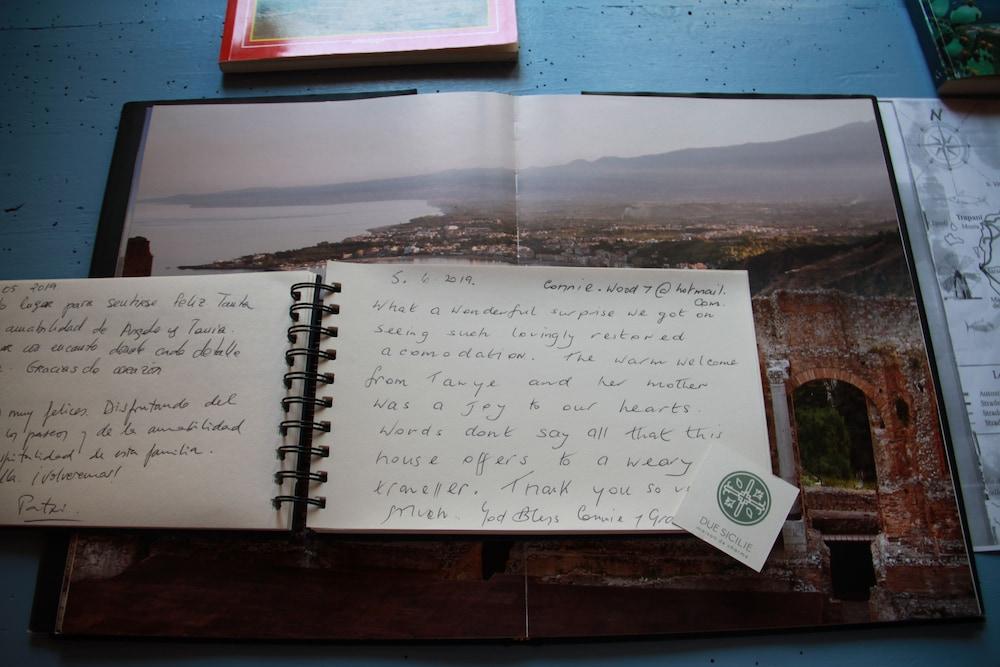 05 2019
lugar para sentirse Feliz Tanta
amabilidad de Angelo y Tania.
un encanto donde cada detalle
. Gracias de corazón
muy felices. Disfrutando del
los paseos y de la amabilidad
hospitalidad de esta familia.
lla. ¡Volveremos!
Patxi.
5. 6 2019. Connie.Wood7@hotmail.
com.
What a wonderful surprise we got on
seeing such lovingly restored
acomodation. The warm welcome
from Tanye and her mother
was a joy to our hearts.
Words dont say all that this
house offers to a weary
traveller. Thank you so
Much. God Bless Connie y Gra
DUE SICILIE
maison de charme
N
Trapani